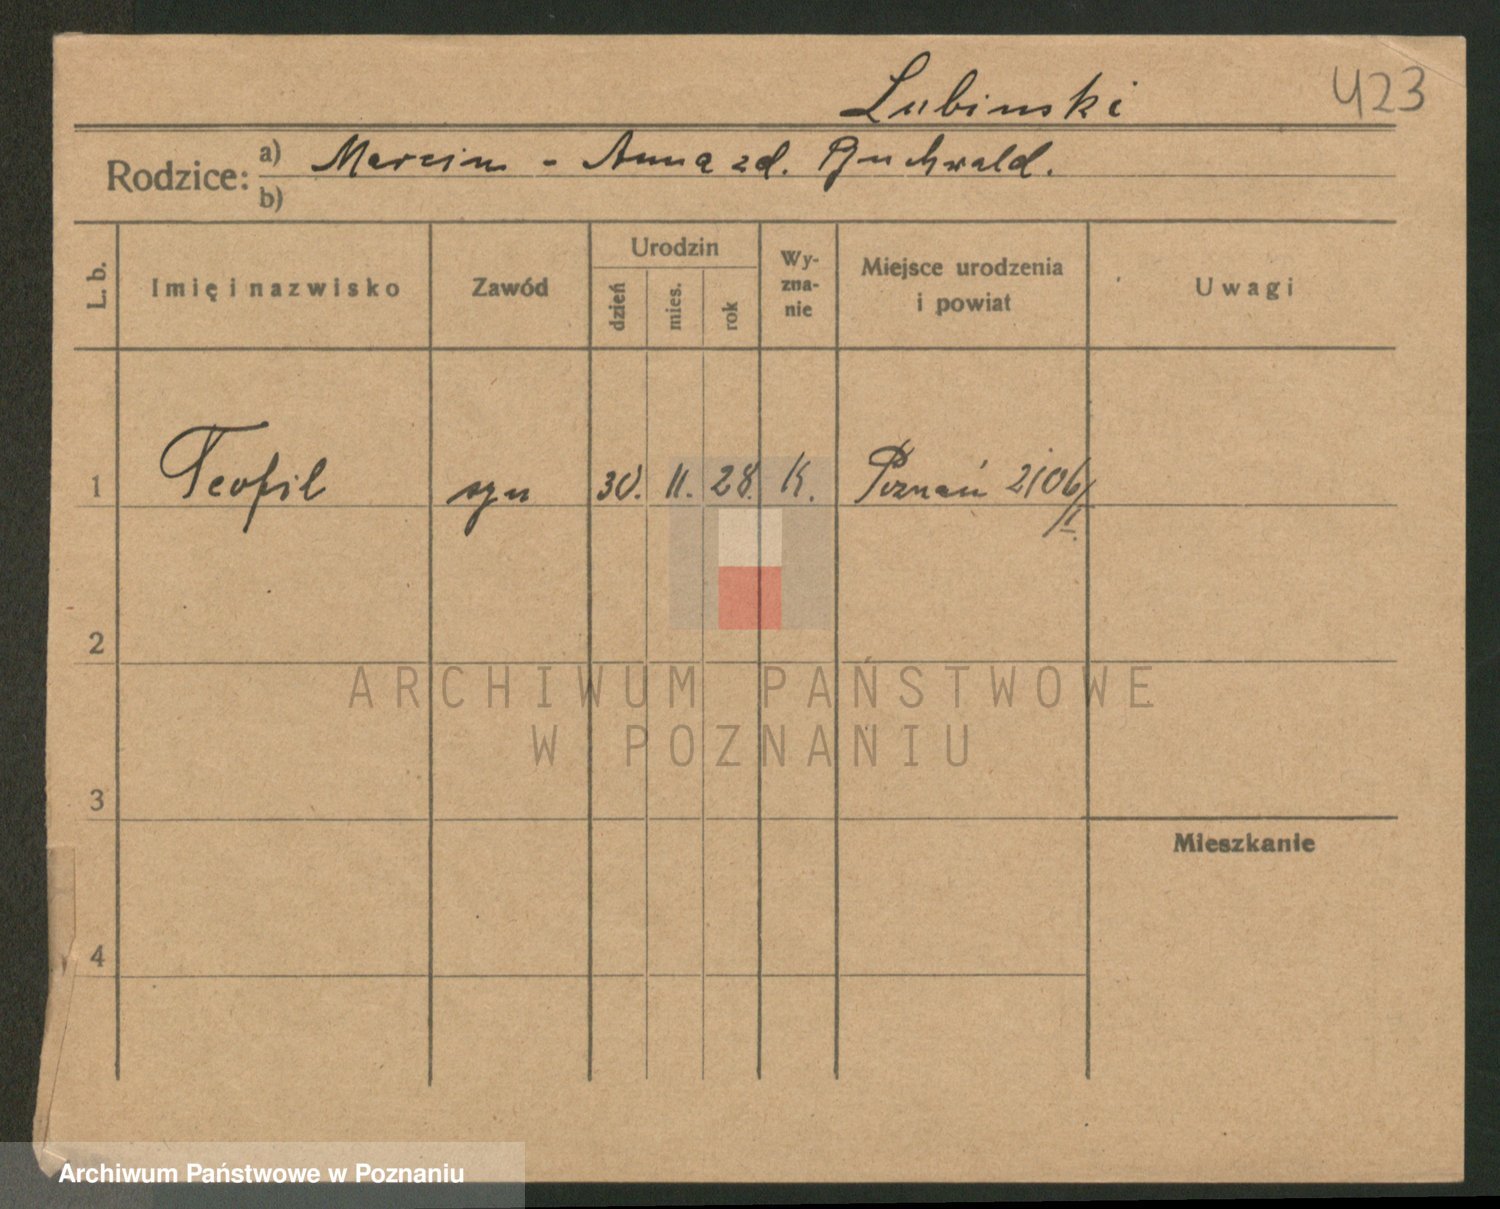 423
Lubinski
Rodzice: a) Marcin - Anna zd. Buchwald.
b)
L. b.
Imię i nazwisko
Zawód
Urodzin
dzień
mies.
rok
Wy-
zna-
nie
Miejsce urodzenia
i powiat
Uwagi
1 Teofil syn 30. 11. 28. K. Poznań 2106/
/I.
2
3
Mieszkanie
4
ARCHIWUM PAŃSTWOWE
W POZNANIU
Archiwum Państwowe w Poznaniu